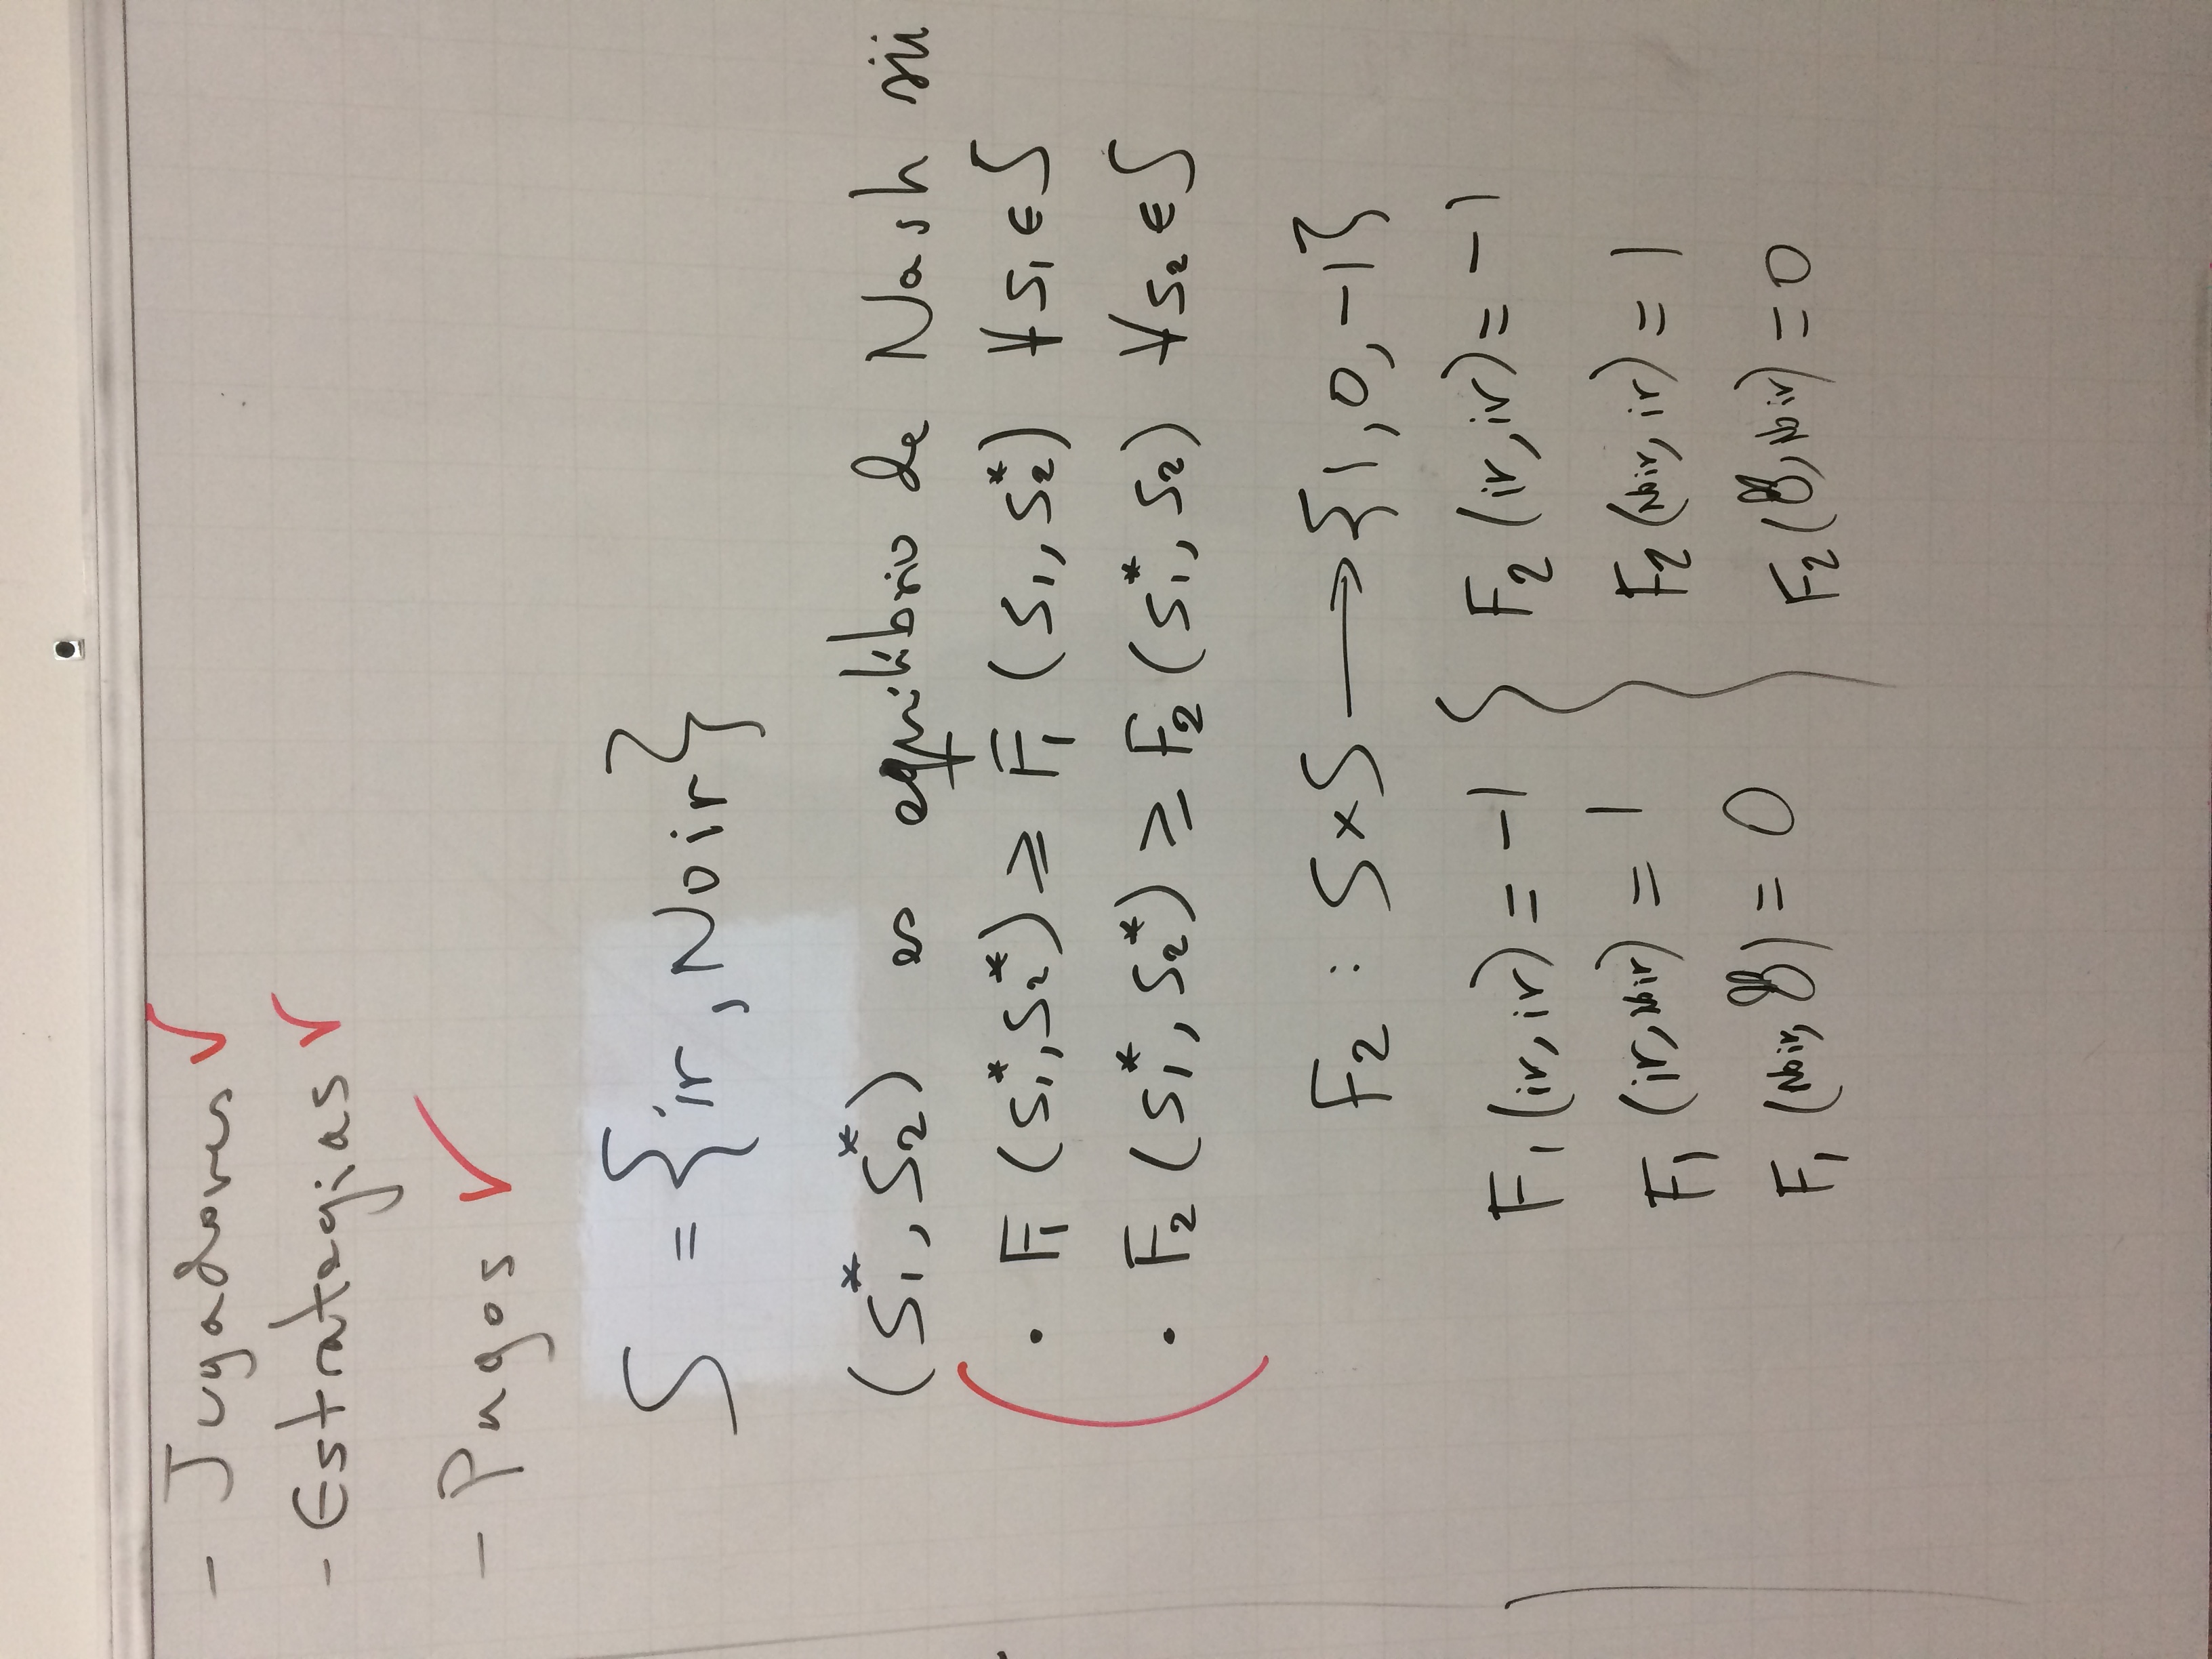 - Jugadores ✓
- Estrategias ✓
- Pagos ✓
S = {ir, No ir}
(S₁*, S₂*) es equilibrio de Nash sii
· F₁ (S₁*, S₂*) ≥ F₁ (S₁, S₂*) ∀ S₁ ∈ S
· F₂ (S₁*, S₂*) ≥ F₂ (S₁*, S₂) ∀ S₂ ∈ S
F₂ : S×S → {1, 0, -1}
F₁ (ir, ir) = -1
F₁ (ir, No ir) = 1
F₁ (No ir, ) = 0
F₂ (ir, ir) = -1
F₂ (No ir, ir) = 1
F₂ ( , No ir) = 0